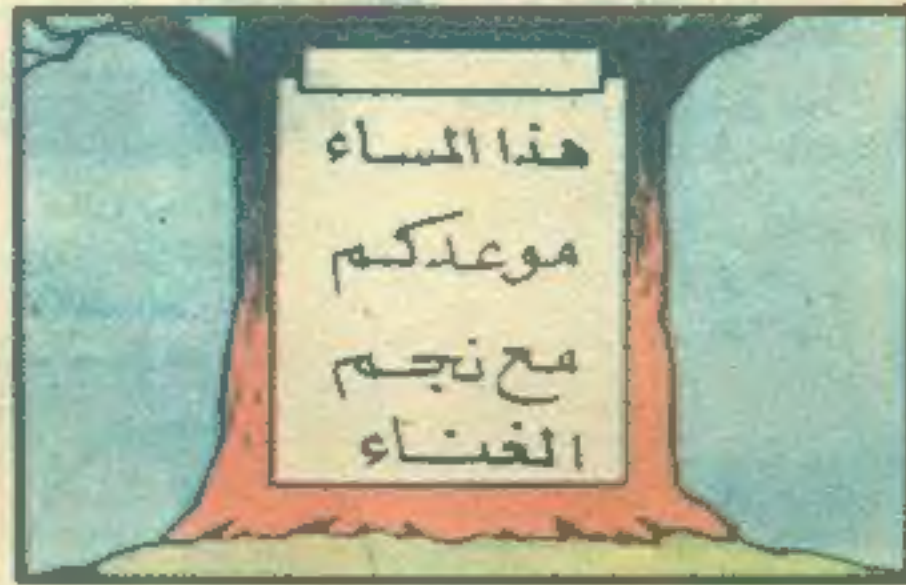 هذا المساء
موعدكم
مع نجم
الغناء